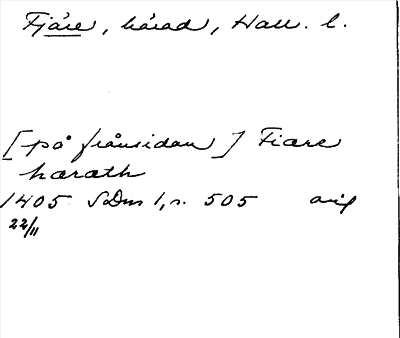 Fjäre, härad, Hall. l.
[på frånsidan] Fiare
harath
1405 SDns 1, s. 505 orig
22/11